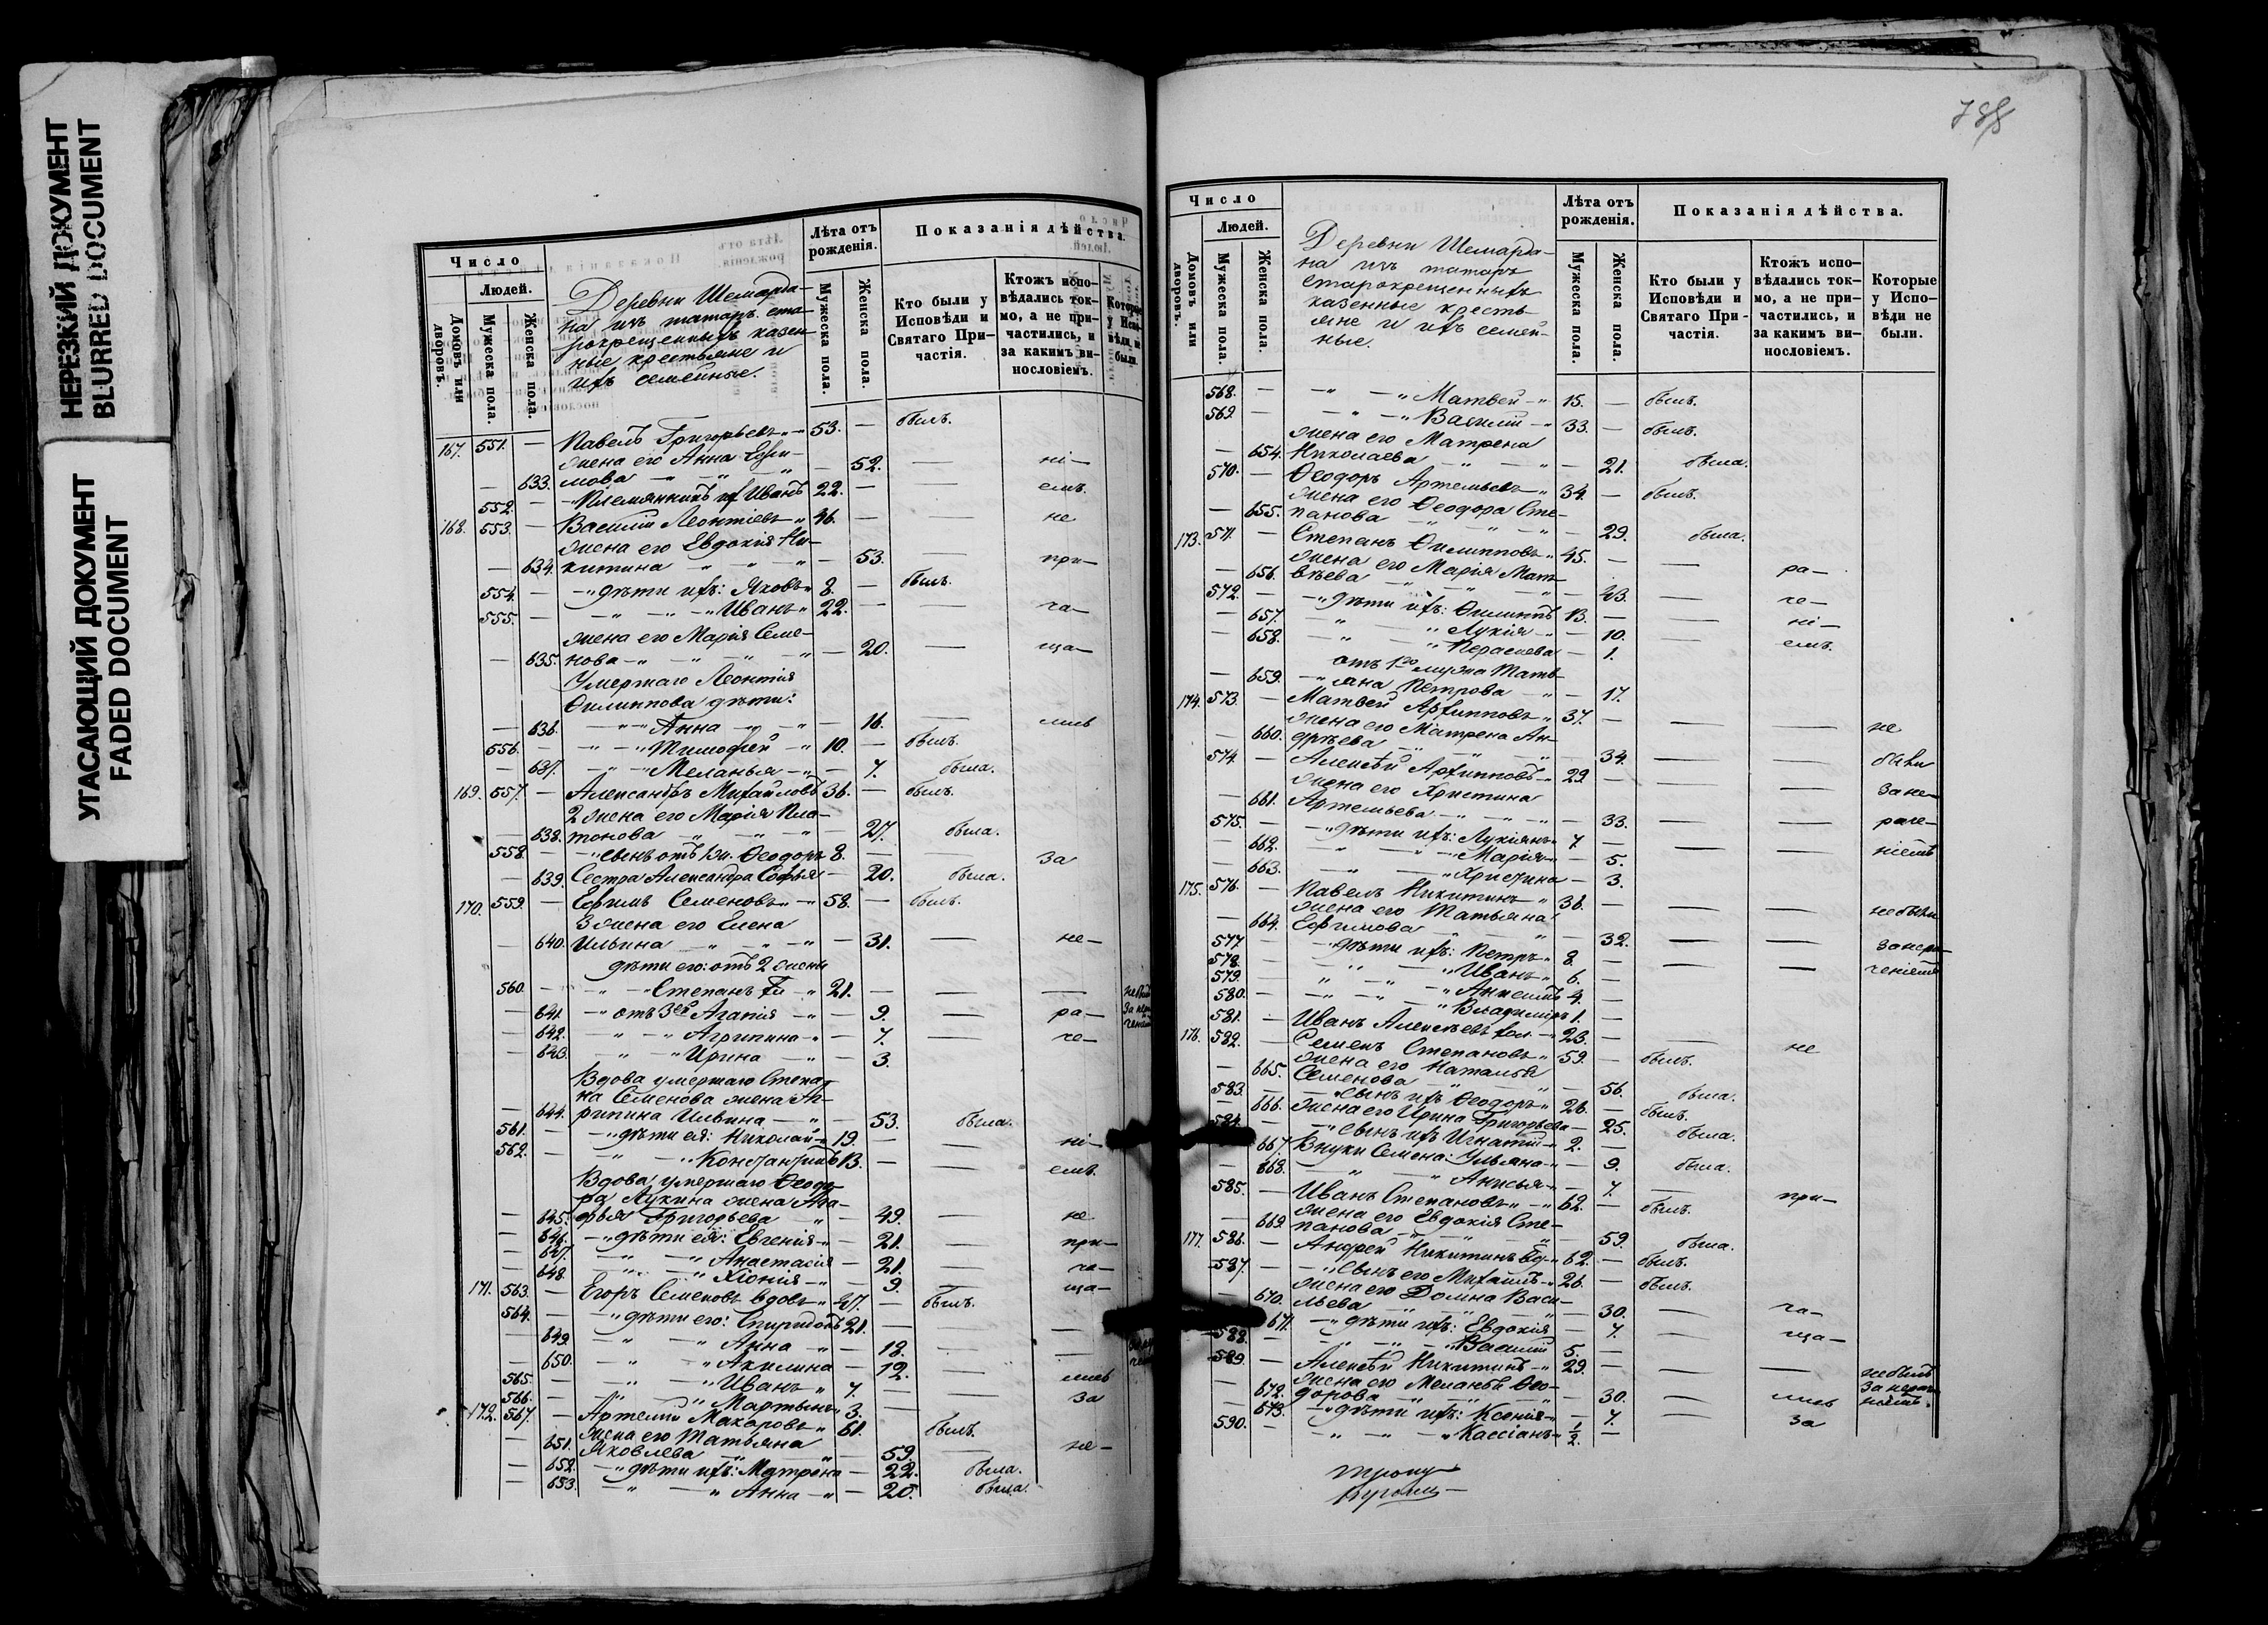 НЕРЕЗКИЙ ДОКУМЕНТ
BLURRED DOCUMENT
УГАСАЮЩИЙ ДОКУМЕНТ
FADED DOCUMENT
Число
Людей.
Домовъ или дворовъ.
Мужеска пола.
Женска пола.
Деревни Шемарда-
на изъ татаръ ста-
рокрещенныхъ казен-
ные крестьяне и
ихъ семейные.
Лѣта отъ рожденія.
Мужеска пола
Женска пола.
Показанія дѣйства.
Кто были у Исповѣди и Святаго При-частія.
Ктожъ испо-вѣдались ток-мо, а не при-частились, и за какимъ ви-нословіемъ.
Которые у Испо-вѣди не были.
167. 551. — Павелъ Григорьевъ 53. — былъ.
жена его Анна Ефи-
— 633. мова — 52. — ні—
552. — Племянникъ их Иванъ 22. — — емъ.
168. 553. — Василій Леонтіевъ 46. — — не
жена его Евдокія Ни-
— 634. китина — 53. — при—
554. — дѣти ихъ: Яковъ 8. — былъ.
555. — Иванъ 22. — — ча—
жена его Марія Семе-
— 635. нова — 20. — ща—
Умершаго Леонтія
Филиппова дѣти:
— 636. Анна — 16. — лись
556. — Тимофей 10. — былъ.
— 637. Меланья — 7. была.
169. 557. — Александръ Михайловъ 36. — былъ.
2 жена его Марія Пла-
— 638. тонова — 27. была.
558. — сынъ отъ 1 ж. Ѳеодоръ 8. — — за
— 639. Сестра Александра Софья — 20. была.
170. 559. — Ефимъ Семеновъ 58. — былъ.
3 жена его Елена
— 640. Ильина — 31. — не—
дѣти его: отъ 2 жены
560. — Степанъ 21. — — —
— 641. отъ 3ей Агапія — 9. — ра—
— 642. Агрипина — 7. — че—
— 643. Ирина — 3.
Вдова умершаго Степа-
на Семенова жена Аг-
— 644. рипина Ильина — 53. была.
561. — дѣти ея: Николай 19. — — ні—
562. — Константинъ 13. — — емъ.
Вдова умершаго Ѳеодо-
ра Лукина жена Ага-
— 645. фья Григорьева — 49. — не
— 646. дѣти ея: Евгенія — 21. — при—
— 647. Анастасія — 21. — ча—
— 648. Хіонія — 9. — ща—
171. 563. — Егоръ Семеновъ вдовъ 47. — былъ.
564. — дѣти его: Спиридонъ 21. — — —
— 649. Анна — 18. — —
— 650. Акилина — 12. — лись
565. — Иванъ 7. — — за
566. — Мартынъ 3. —
172. 567. — Артемій Макаровъ 61. былъ.
жена его Татьяна
— 651. Яковлева — 59. — не—
— 652. дѣти ихъ: Матрена — 22. была.
— 653. Анна — 20. была.
788
Число
Людей.
Домовъ или дворовъ.
Мужеска пола.
Женска пола.
Деревни Шемарда-
на изъ татаръ
старокрещенныхъ
казенные кресть-
яне и ихъ семей-
ные.
Лѣта отъ рожденія.
Мужеска пола.
Женска пола.
Показанія дѣйства.
Кто были у Исповѣди и Святаго При-частія.
Ктожъ испо-вѣдались ток-мо, а не при-частились, и за какимъ ви-нословіемъ.
Которые у Испо-вѣди не были.
568. — Матвей 15. — былъ.
569. — Василій 33. — былъ.
жена его Матрена
— 654. Николаева — 21. была.
570. — Ѳеодоръ Артемьевъ 34. — былъ.
жена его Ѳеодора Сте-
— 655. панова — 29. была.
173. 571. — Степанъ Филипповъ 45. — — ра—
жена его Марія Мат-
— 656. вѣева — 43. — че—
572. — дѣти ихъ: Филиппъ 13. — — ні—
— 657. Лукія — 10. — емъ.
— 658. Параскева — 1.
отъ 1го мужа Тать-
— 659. яна Петрова — 17.
174. 573. — Матвей Архиповъ 37. — — — не
жена его Матрена Ан-
— 660. дрѣева — 34. — — были
574. — Алексѣй Архиповъ 29. — — — за не—
жена его Христина
— 661. Артемьева — 33. — — раче—
575. — дѣти ихъ: Лукіянъ 7. — — — ніемъ
— 662. Марія — 5.
— 663. Христина — 3.
175. 576. — Павелъ Никитинъ 36. — — — не были
жена его Татьяна
— 664. Ефимова — 32. — — за нера—
577. — дѣти ихъ: Петръ 8. — — — ченіемъ
578. — Иванъ 6. —
579. — Анисимъ 4. —
580. — Владиміръ 1. —
581. — Иванъ Алексѣевъ хол. 23. — — не
176. 582. — Семенъ Степановъ 59. — былъ.
жена его Наталья
— 665. Семенова — 56. была.
583. — Сынъ ихъ Ѳеодоръ 26. — былъ.
— 666. жена его Ирина Григорьева — 25. была.
584. — Сынъ ихъ Игнатій 2. —
— 667. Внуки Семена: Ульяна — 9. была.
— 668. Анисья — 7. — при—
585. — Иванъ Степановъ 62. — былъ.
жена его Евдокія Сте-
— 669. панова — 59. была.
177. 586. — Андрей Никитинъ вд. 62. — былъ.
587. — Сынъ его Михаилъ 26. — былъ.
жена его Домна Васи-
— 670. льева — 30. — ча—
— 671. дѣти ихъ: Евдокія — 7. — ща—
588. — Василій 5. —
589. — Алексѣй Никитинъ 29. — — — не былъ
жена его Меланья Ѳео-
— 672. дорова — 30. — лись
— 673. дѣти ихъ: Ксенія — 7. — за
590. — Кассіанъ ½. —